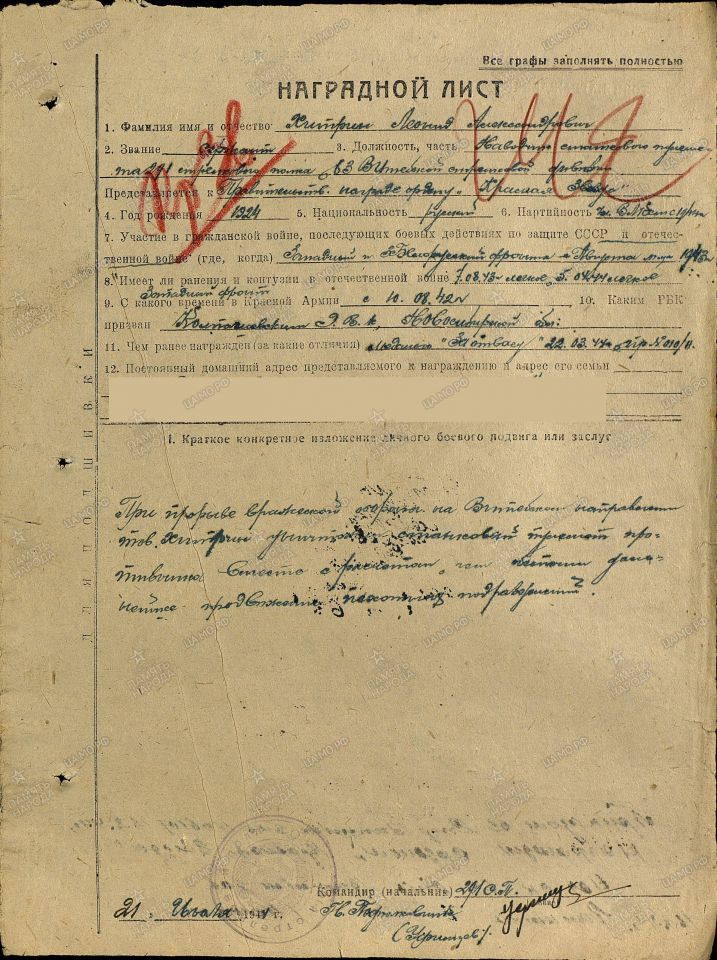 Все графы заполнять полностью
НАГРАДНОЙ ЛИСТ
1. Фамилия имя и отчество Хитрин Леонид Александрович
2. Звание Сержант 3. Должность, часть Наводчик станкового пулеме-
та 291 стрелкового полка 63 Витебской стрелковой дивизии
Представляется к Правительств. награде ордену "Красная Звезда"
4. Год рождения 1924 5. Национальность русский 6. Партийность
7. Участие в гражданской войне, последующих боевых действиях по защите СССР и отече-
ственной войне (где, когда) Западный и 3 Белорусский фронта с марта м-ца 1943г
8. Имеет ли ранения и контузии в отечественной войне 7.03.43г легкое, 5.04.44 легкое
Западный фронт
9. С какого времени в Красной Армии с 10.08.42г 10. Каким РВК
призван Колпашевским Р.В.К., Новосибирской обл.
11. Чем ранее награжден (за какие отличия) медалью "За отвагу" 22.03.44г пр № 010/н
12. Постоянный домашний адрес представляемого к награждению и адрес его семьи
I. Краткое конкретное изложение личного боевого подвига или заслуг
При прорыве вражеской обороны на Витебском направлении
тов. Хитрин станковый пулемет про-
тивника вместе с расчетом, чем даль-
нейшее продвижение подразделений.
Командир (начальник) 291 С.П.
21 Июля 1944 г. П. Подполковник
ДЛЯ ПОДШИВКИ
ПАМЯТЬ НАРОДА
ЦАМО.РФ